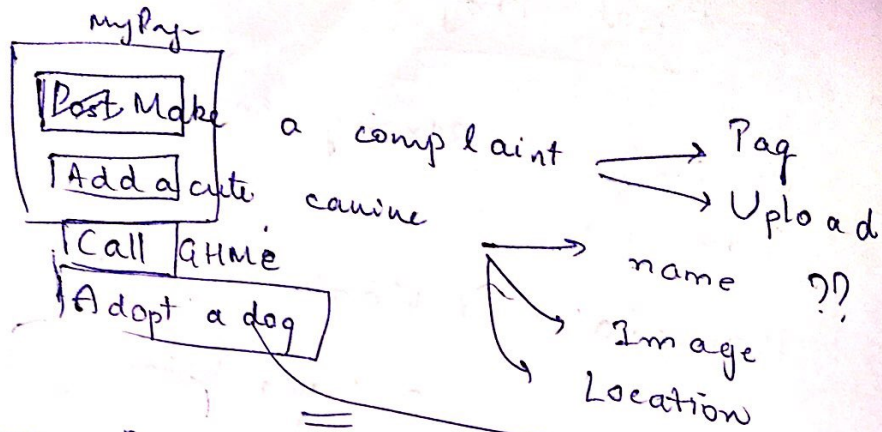 MyPage
Post Make a complaint
Tag
Upload
Add a cute canine
name ??
Image
Location
Call GHMC
Adopt a dog